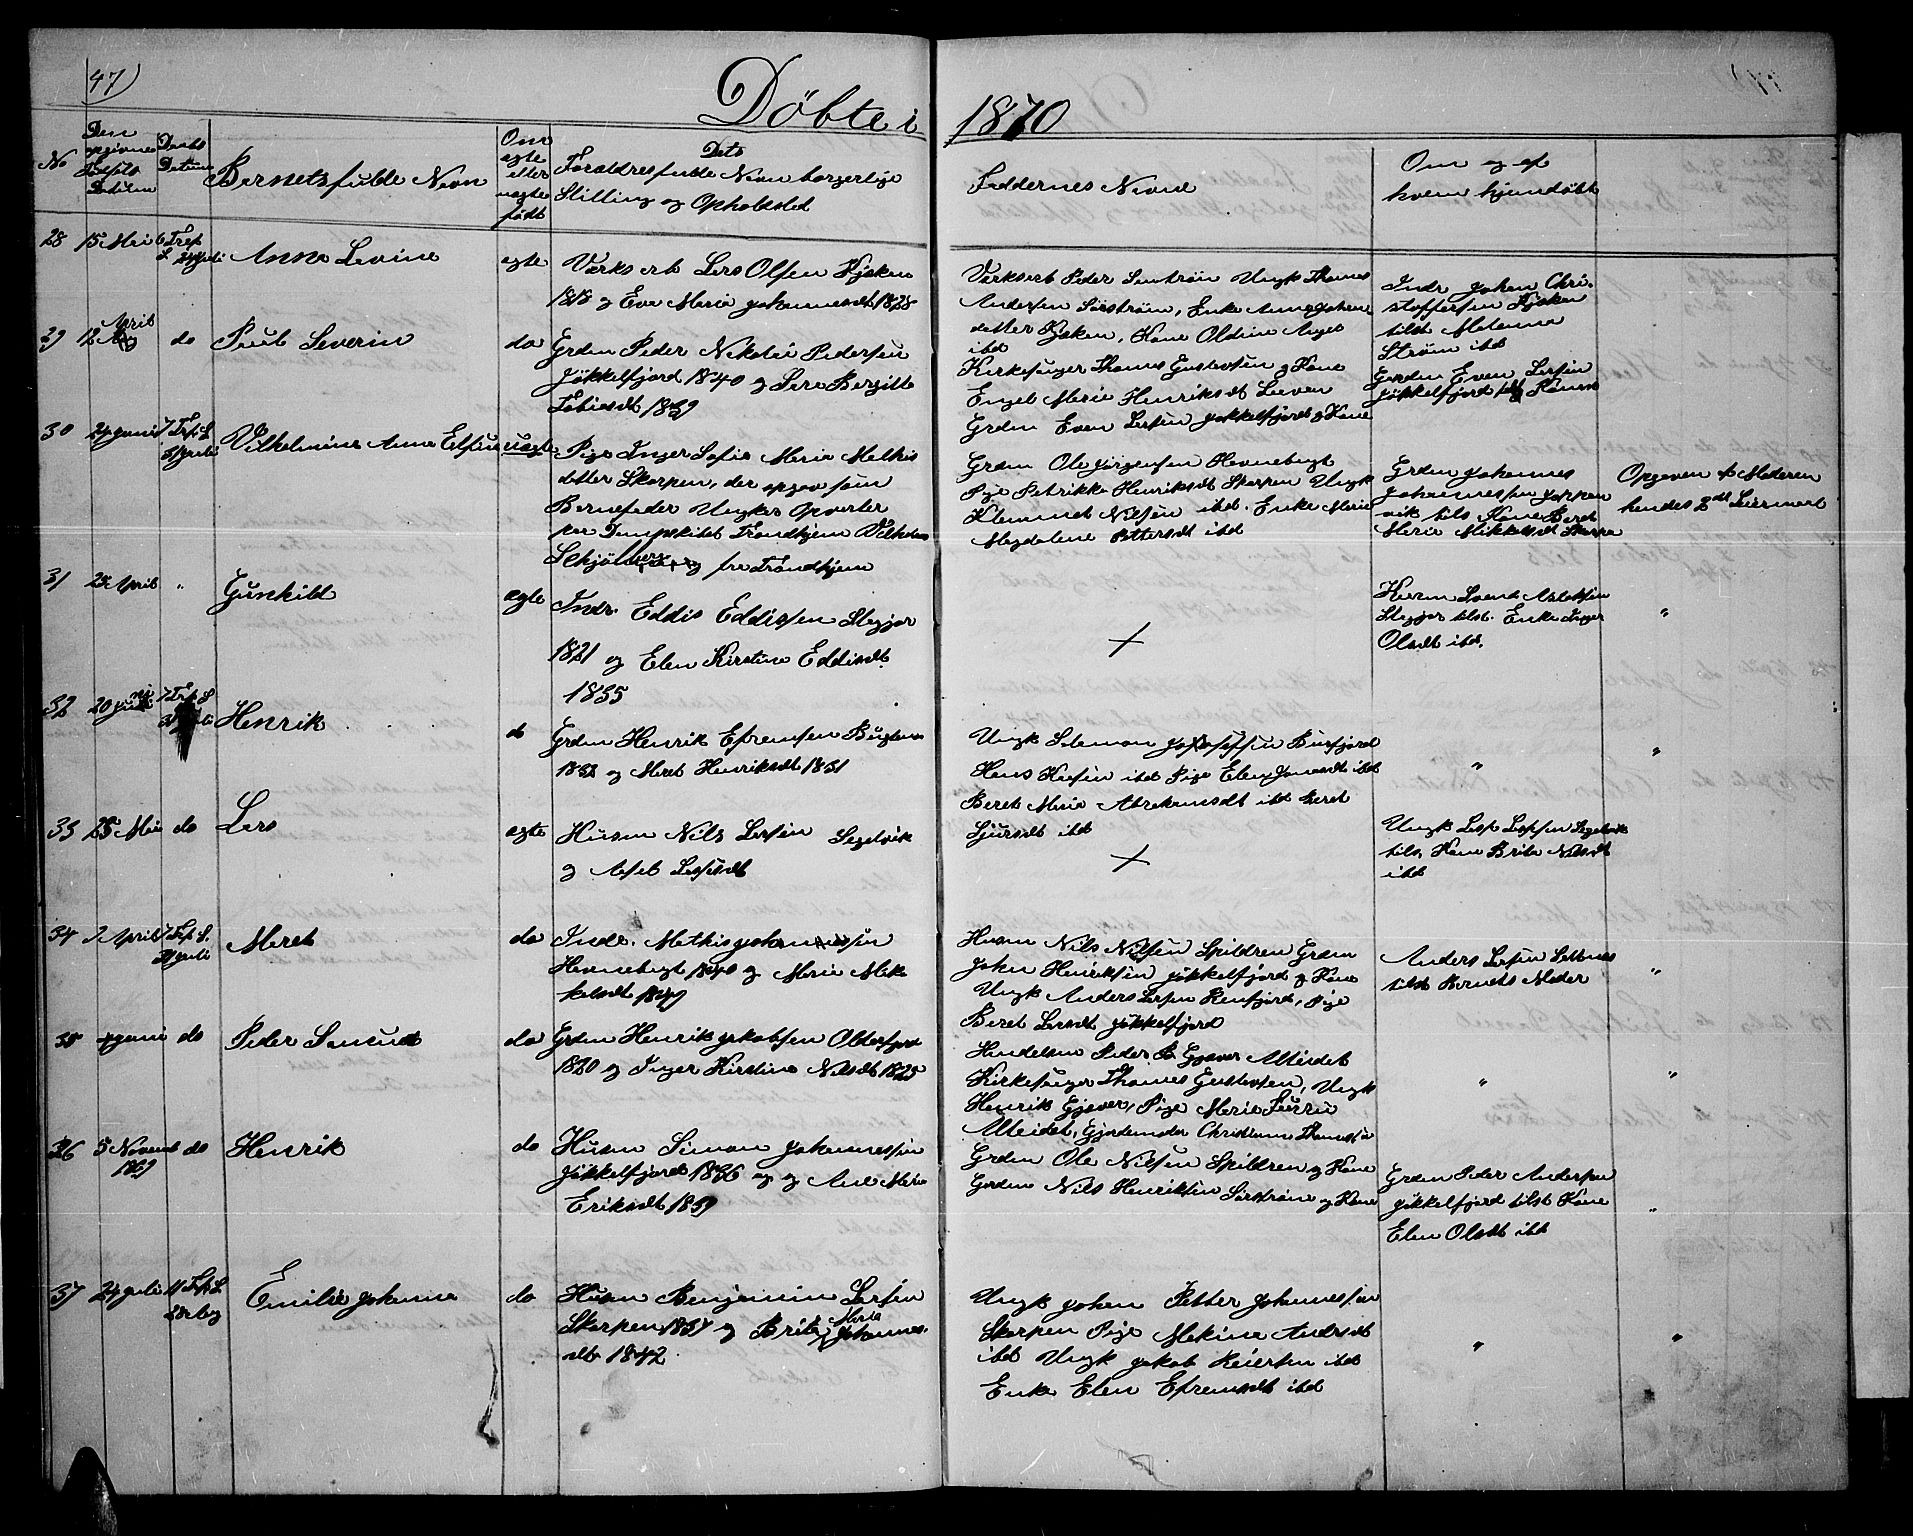 47)
Döbte i 1870
No
Den opgivne Fødsels Datum
Daabs Datum
Bernetsfulde Navn
Om egte eller uegte født
Dets Foreldresfulde Navn borgerlige
Stilling og Opholssted
Faddernes Navne
Om og af
hvem hjemdøbt
28 15 Mai 6 Tref
Anne Levine
egte
Værks arb Lers Olsen Kjøken
1818 og Eva Maria Johannesdt 1828
Værksarb Peder Senstrøm Ungk Thomes
Andersen Sørstrøm, Enke Anne Johen
detter Kjøken, Kone Oldine Auges
ibd
Indr Johen Chri-
stoffersen Kjøken
tilst Matenna
Strøm ibd
29 12 April do
Paul Severin
do
Grdm Peder Nikolai Pedersen
Jøkkelfjord 1840 og Sara Bergitte
Tobiasdt 1839
Kirkesanger Thomes Gustavsen og Kone
Engel Maria Henriksdt Leeven
Grdm Even Larsen Jøkkelfjord og Kone
Grdm Even Larsen
Jøkkelfjord
30 24 Juni 7 Tref. S.
Vilhelmine Anne Elfine
uegt
Pige Inger Sofie Maria Mathis
detter Skorpen, der opgav som
Barnefader Ungkar Opverter
paa Dampskibet Trondhjem Vilhelm
Schjølberg fra Trondhjem
Grdm Ole Jørgensen Havnebugt
Pige Petrikke Henriksdt Skorpen Ungk
Klemmet Nilsen ibd. Enke Maria
Magdalene Pettersdt ibd
Grdm Johannes
Johannessen Joppen
vik tils Kone Beret
Maria Mikkelsdt Skorpen
Opgaven af Moderen
hendes 2det Leiermaal
31 28 April "
Gunhild
egte
Indr. Eddis Eddissen Slegjar
1821 og Elen Kirstine Eddisdt
1835
+
Husm Svend Aslaksen
Slegjar tilst. Enke Inger
Olsdt ibd.
"
32 20 Juni 7 Tref S
Henrik
do
Grdm Henrik Efremsen Bugten
1832 og Maret Henriksdt 1831
Ungk Salamon Josefsen Burfjord
Hans Husin ibd Pige Elen Jonasdt ibd
Beret Maria Abrahamsdt ibd Beret
Sjursdt ibd
"
"
33 25 Mai do
Lers
egte
Husm Nils Larsen Segelvik
og Aset Larsdt
+
Ungk Lars Larsen Segelvik
tils. Kone Brita Nilsdt
ibd
34 7 April 7 Tref. S.
Maret
do
Indr. Mathis Johannessen
Havnebugt 1840 og Maria Mik
kelsdt 1849
Husm Nils Nilsen Spildren Grdm
John Henriksen Jøkkelfjord og Kone
Ungk Anders Larsen Reinfjord, Pige
Beret Larsdt Jøkkelfjord
Anders Larsen
tilst Bernets Moder
"
35 Juni do
Peder Samuel
do
Grdm Henrik Jakobsen Olderfjord
1820 og Inger Kirstine Nilsdt 1825
Handelsm Peder B Gjæver Alteidet
Kirkesanger Thomes Gustavsen, Ungk
Henrik Gjæver, Pige Maria Furru
Alteidet, Gjordemoder Christiane Thomesen
"
"
36 5 Novemb do
1869
Henrik
do
Husm Simon Johannessen
Jøkkelfjord 1836 og og Ane Maria
Eriksdt 1839
Grdm Ole Nilsen Spildren og Kone
Grdm Nils Henriksen Sørstrøm og Kone
Grdm Peder Andersen
Jøkkelfjord tilst Kone
Elen Olsdt ibd
"
37 24 Juli 11 Tref. S.
Emilie Johanna
do
Husm Benjamin Larsen
Skorpen 1837 og Brita Maria Johannes-
dt 1842
Ungk Johan Petter Johannessen
Skorpen Pige Makina Andrsdt
ibd Ungk Jakob Reiersen ibd
Enke Elen Efremsdt ibd
"
"